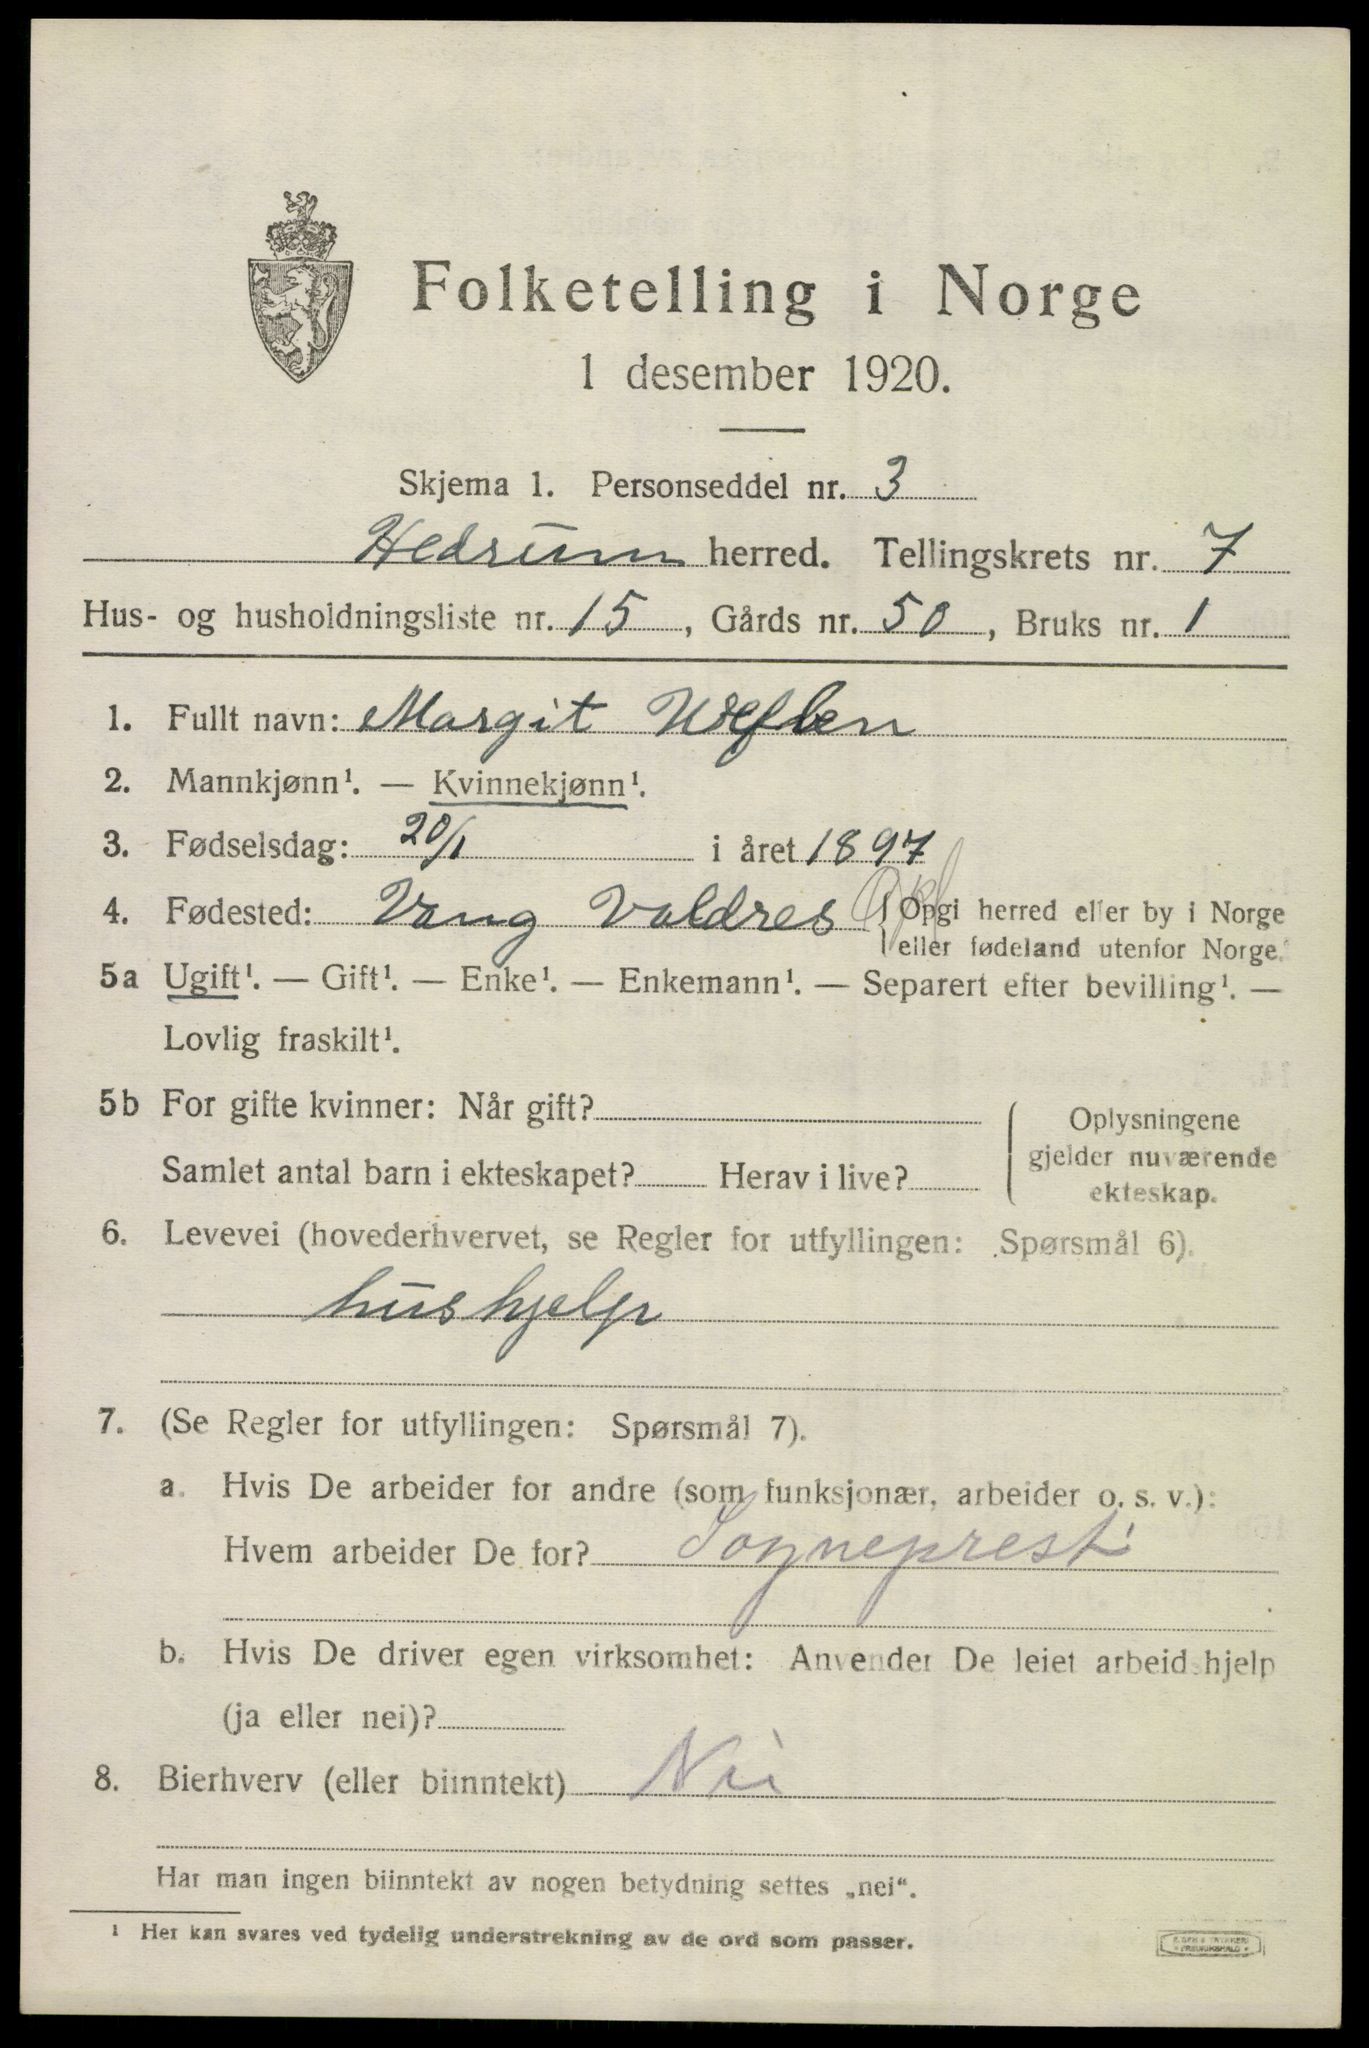 Folketelling i Norge
1 desember 1920.
Skjema 1. Personseddel nr. 3
Hedrum herred. Tellingskrets nr. 7
Hus- og husholdningsliste nr. 15, Gårds nr. 50, Bruks nr. 1
1. Fullt navn: Margit
2. Mannkjønn¹. — Kvinnekjønn¹.
3. Fødselsdag: 20/1 i året 1897
4. Fødested: Vang Valdres Opl { Opgi herred eller by i Norge
eller fødeland utenfor Norge.
5a Ugift¹. — Gift¹. — Enke¹. — Enkemann¹. — Separert efter bevilling¹. —
Lovlig fraskilt¹.
5b For gifte kvinner: Når gift?
Samlet antal barn i ekteskapet? Herav i live?
Oplysningene
gjelder nuværende
ekteskap.
6. Levevei (hovederhvervet, se Regler for utfyllingen: Spørsmål 6).
hushjelp
7. (Se Regler for utfyllingen: Spørsmål 7).
a. Hvis De arbeider for andre (som funksjonær, arbeider o. s. v.):
Hvem arbeider De for? Sogneprest
b. Hvis De driver egen virksomhet: Anvender De leiet arbeidshjelp
(ja eller nei)?
8. Bierhverv (eller biinntekt) Nei
Har man ingen biinntekt av nogen betydning settes „nei“.
¹ Her kan svares ved tydelig understrekning av de ord som passer.